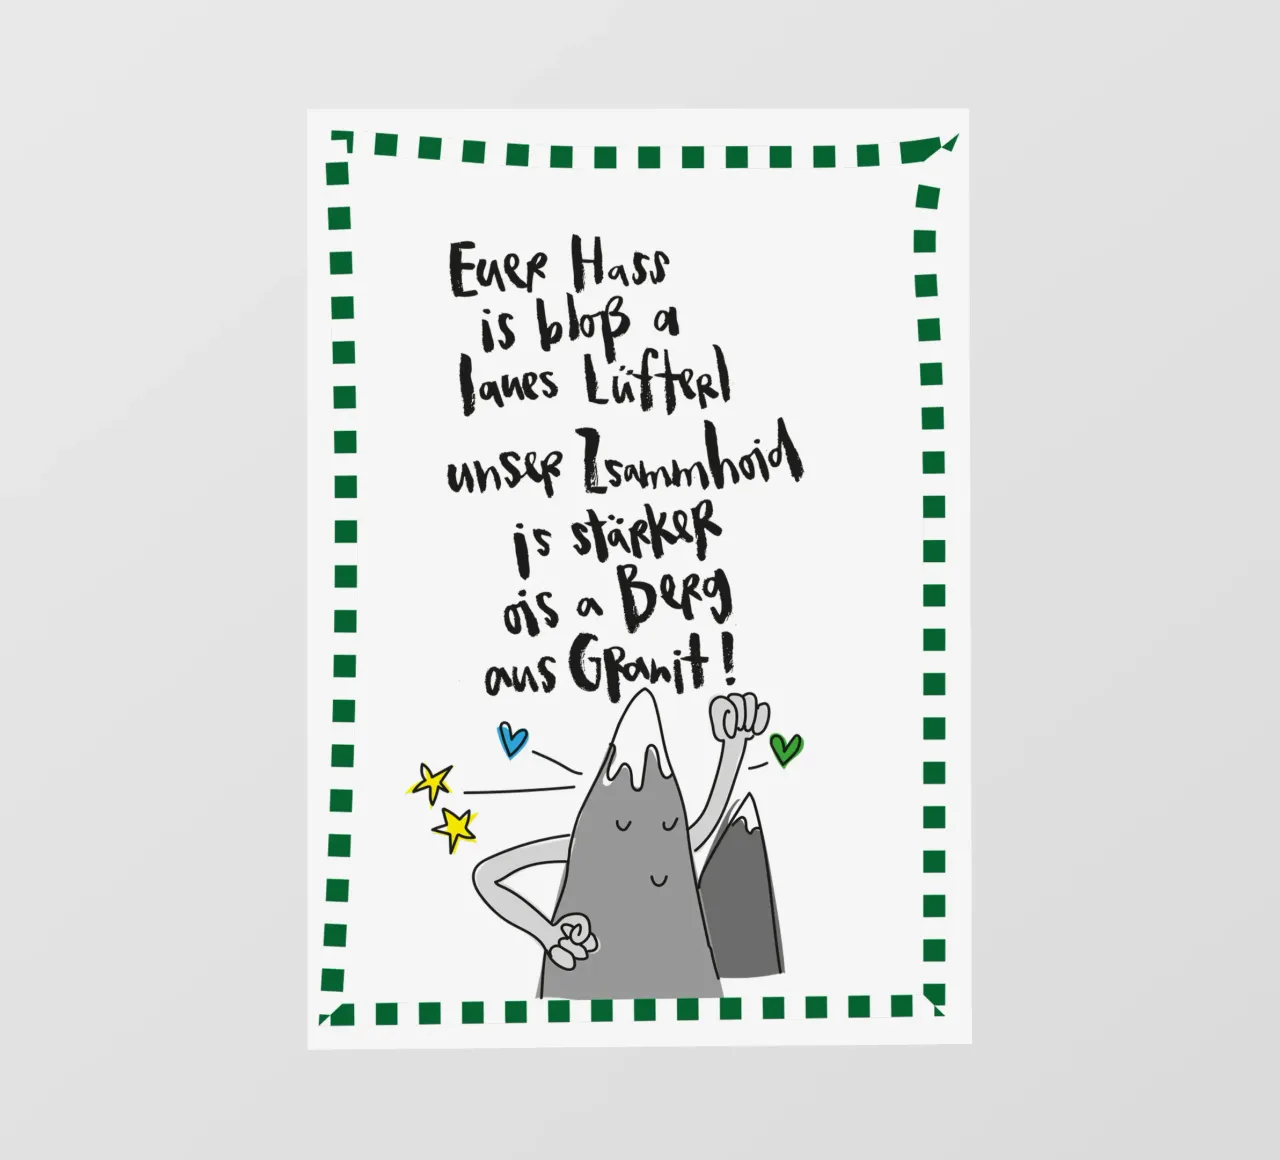 Euer Hass
is bloß a
laues Lüfterl
unser Zsammhoid
is stärker
ois a Berg
aus Granit!